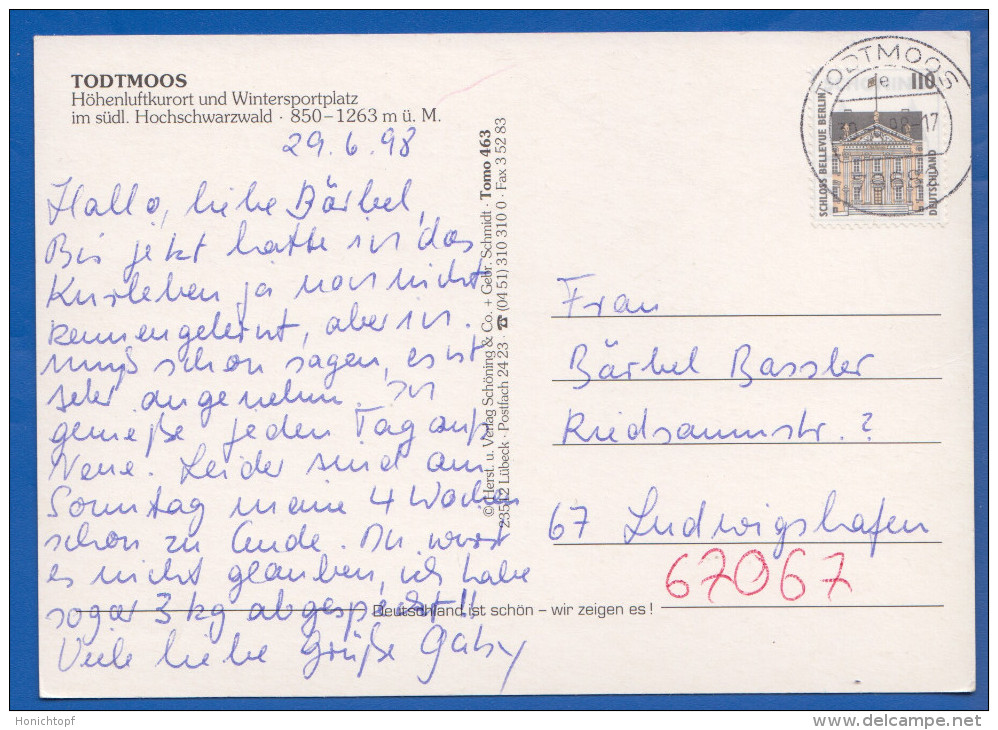 TODTMOOS
Höhenluftkurort und Wintersportplatz
im südl. Hochschwarzwald · 850–1263 m ü. M.
29.6.98
Hallo, liebe Bärbel,
Bis jetzt hatte ich das
Kurleben ja noch nicht
kennengelernt, aber ich
muß schon sagen, es ist
sehr angenehm. Ich
genieße jeden Tag aufs
Neue. Leider sind am
Sonntag meine 4 Wochen
schon zu Ende. Du wirst
es nicht glauben, ich habe
sogar 3 kg abgespeckt!!
Viele liebe Grüße Gaby
© Herst. u. Verlag Schöning & Co. + Gebr. Schmidt · Tomo 463
23512 Lübeck · Postfach 24 23 · ☎ (04 51) 310 310 0 · Fax 3 52 83
Deutschland ist schön – wir zeigen es !
TODTMOOS
110
SCHLOSS BELLEVUE BERLIN
DEUTSCHLAND
Frau
Bärbel Bassler
Riedsaumstr. ?
67 Ludwigshafen
67067
Honichtopf
www.delcampe.net